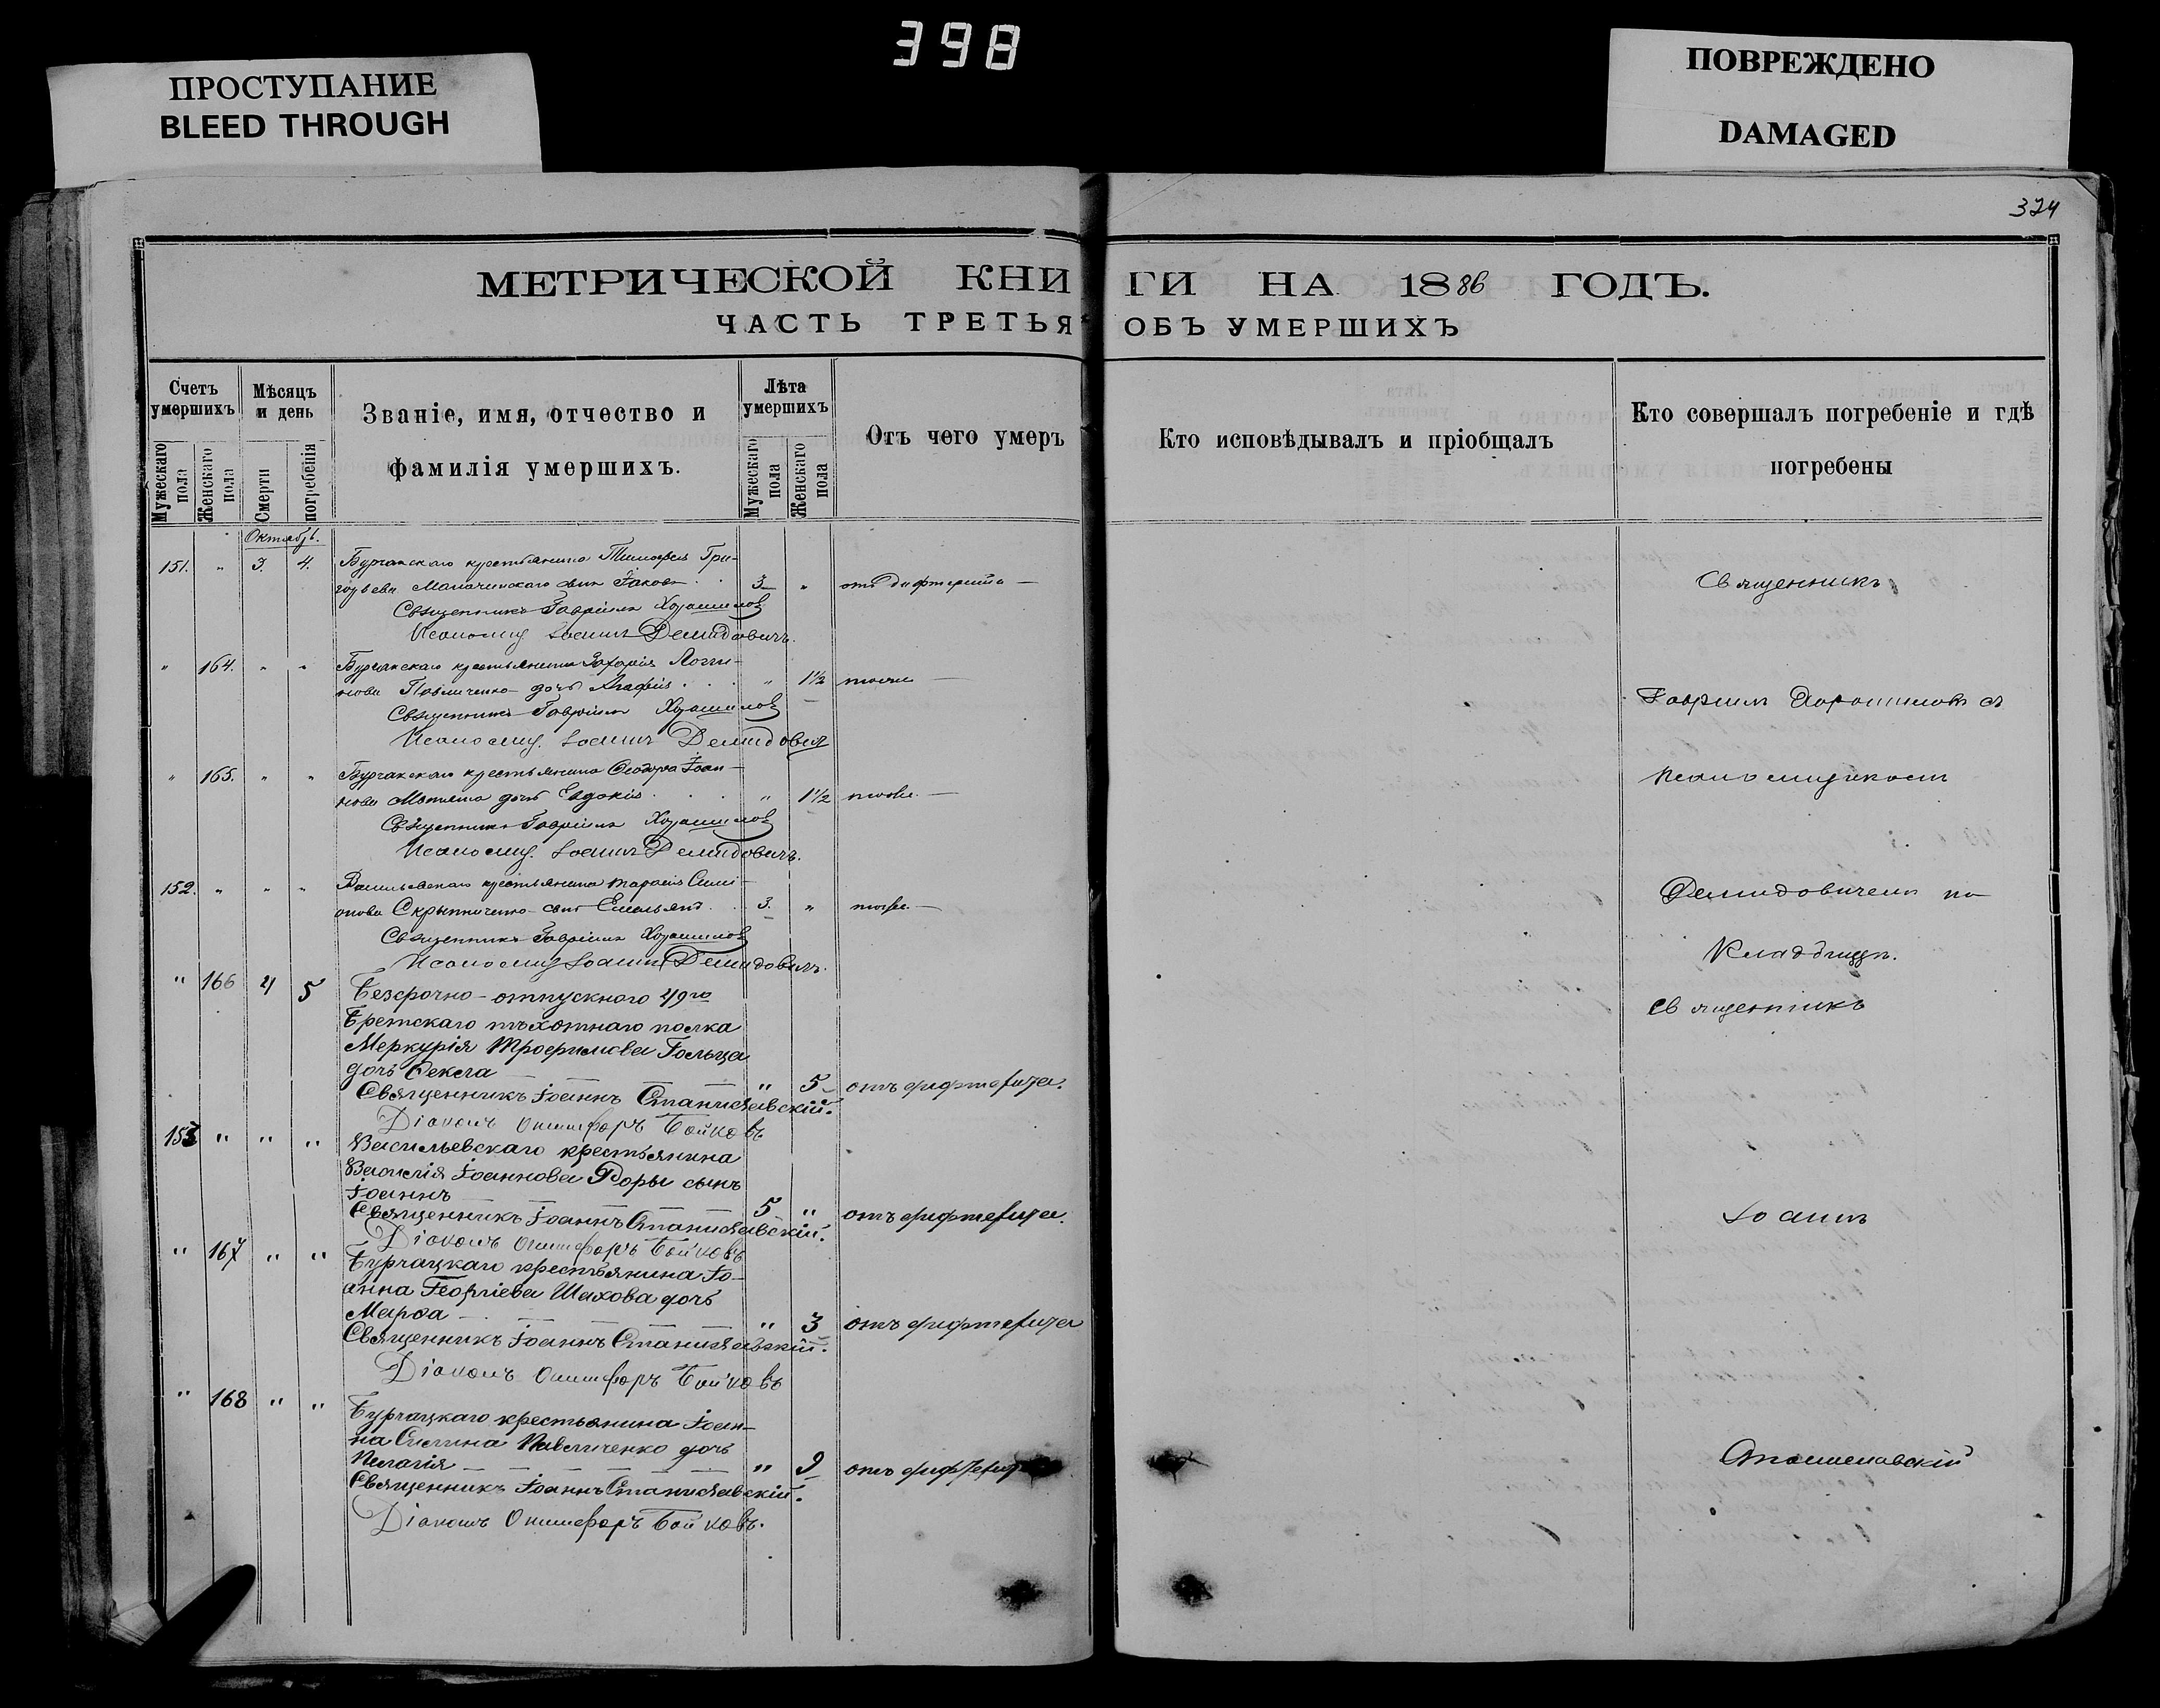 398
ПРОСТУПАНИЕ
BLEED THROUGH
ПОВРЕЖДЕНО
DAMAGED
374
МЕТРИЧЕСКОЙ КНИГИ НА 1886 ГОДЪ.
ЧАСТЬ ТРЕТЬЯ ОБЪ УМЕРШИХЪ
Счетъ умершихъ
Мужескаго пола
Женскаго пола
Мѣсяцъ и день
Смерти
погребенія
Званіе, имя, отчество и
фамилія умершихъ.
Лѣта умершихъ
Мужескаго пола
Женскаго пола
Отъ чего умеръ
Кто исповѣдывалъ и пріобщалъ
Кто совершалъ погребеніе и гдѣ
погребены
Октябрь.
151. " 3. 4. крестьянина Тимофея Гри-
горьева сынъ Іаковъ 3 " отъ дифтерита —
Священникъ Гавріилъ Хорошиловъ
Псаломщ. Іоаннъ Демидовичъ.
" 164. " " крестьянина Захарія Логги-
нова Павличенко дочь Агафія " 1½ тоже —
Священникъ Гавріилъ Хорошиловъ
Псаломщ. Іоаннъ Демидовичъ
" 165. " " крестьянина Ѳеодора Іоан-
нова дочь Евдокія " 1½ тоже. —
Священникъ Гавріилъ Хорошиловъ
Псаломщ. Іоаннъ Демидовичъ.
152. " " " Васильевскаго крестьянина Тарасія Сими-
онова Скрыпниченко сынъ Емельянъ 3. " тоже. —
Священникъ Гавріилъ Хорошиловъ
Псаломщ Іоаннъ Демидовичъ.
" 166 4 5 Безсрочно-отпускнаго 49го
Бретскаго пѣхотнаго полка
Меркурія Трофимова Гольца
дочь Ѳекла " 5 отъ дифтерита.
Священникъ Іоаннъ Станиславскій.
Діаконъ Онисифоръ Бойковъ
153 " " " Васильевскаго крестьянина
Василія Іоаннова сынъ
Іоаннъ 5 " отъ дифтерита.
Священникъ Іоаннъ Станиславскій.
Діаконъ Онисифоръ Бойковъ
" 167 " " Бурчацкаго крестьянина Іо-
анна Георгіева Шахова дочь
Марѳа " 3 отъ дифтерита
Священникъ Іоаннъ Станиславскій.
Діаконъ Онисифоръ Бойковъ
" 168 " " Бурчацкаго крестьянина Іоан-
на Павличенко дочь
Пелагія " 9 отъ
Священникъ Іоаннъ Станиславскій.
Діаконъ Онисифоръ Бойковъ.
Священникъ
Гавріилъ Хорошиловъ съ
псаломщикомъ
Демидовичемъ на
Кладбищѣ.
Священникъ
Іоаннъ
Станиславскій